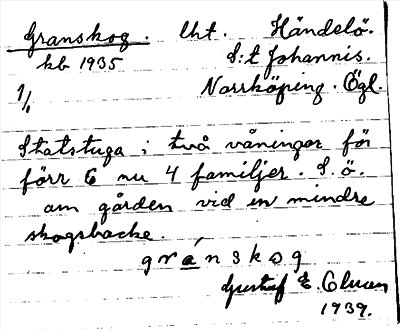 Granskog. lht. Händelö.
kb 1935 S:t Johannis.
1/1 Norrköping. Ögl.
Statstuga i två våningar för
förr 6 nu 4 familjer. S. ö.
om gården vid en mindre
skogsbacke.
gránskog
Gustaf E. Olsson
1939.